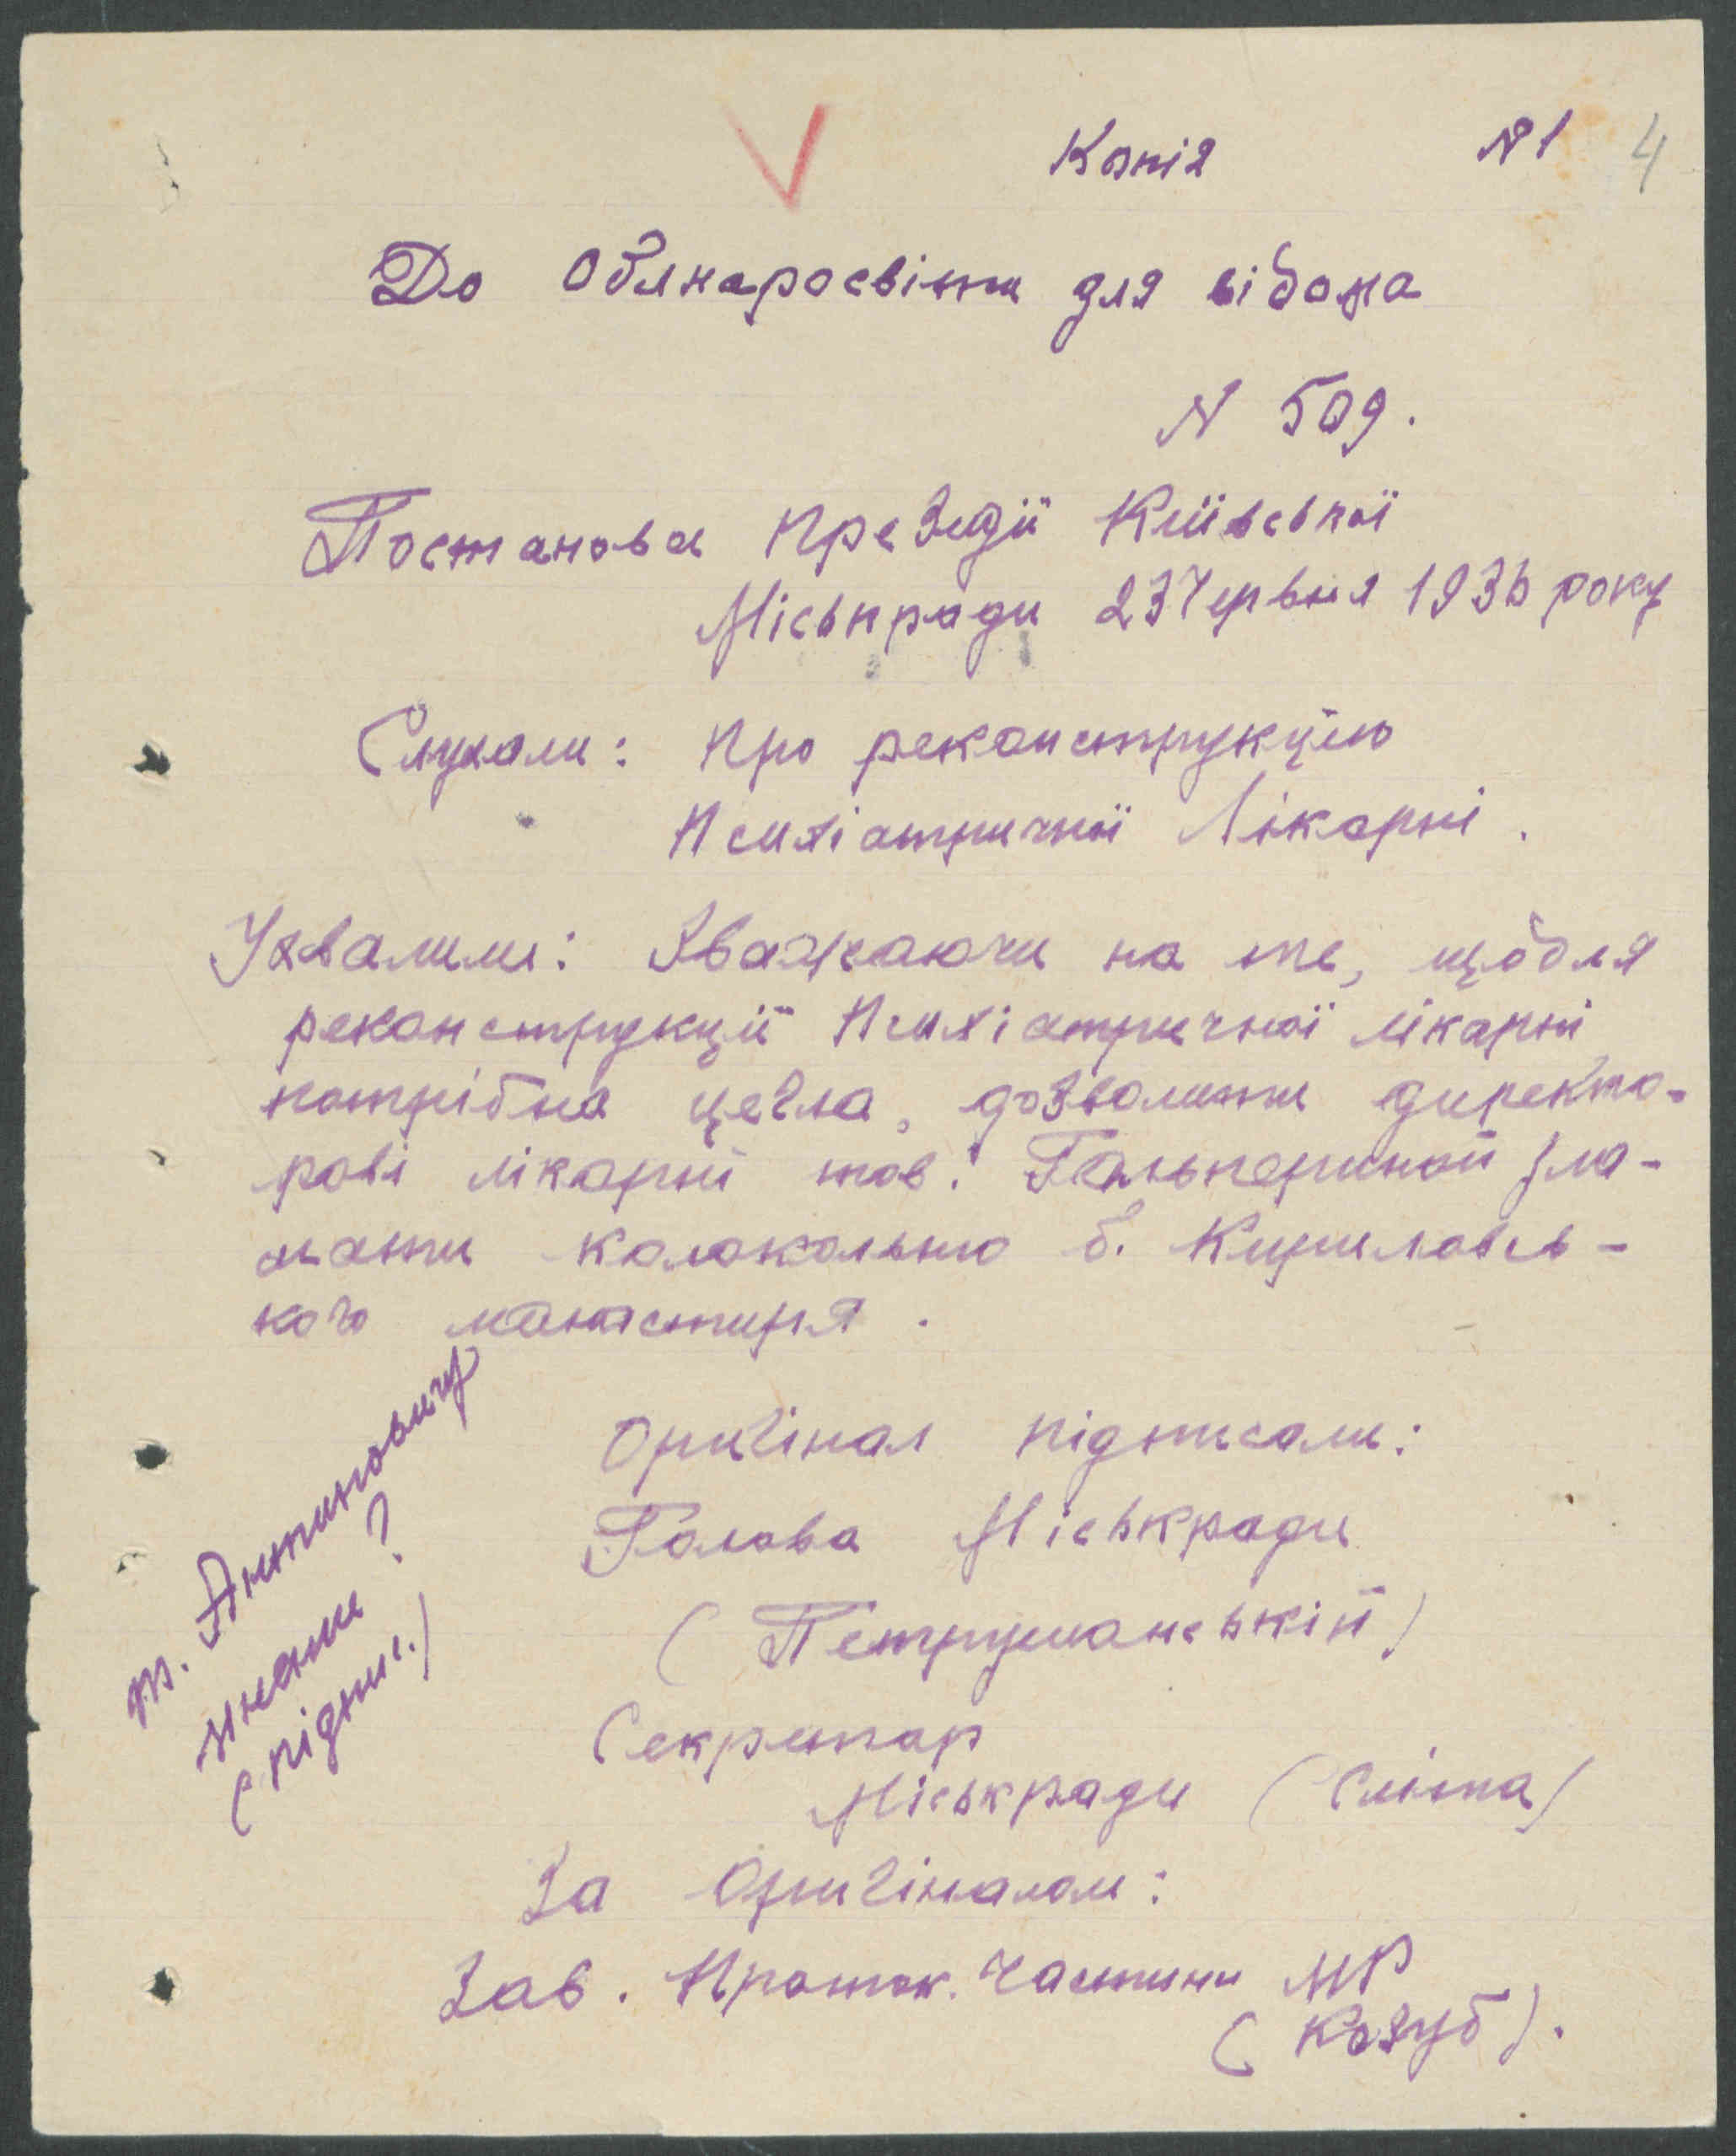 Копія № 1 4
До Облнаросвіти для відома
N 509.
Постанова Президії Київської
Міськради 23 Червня 1936 року
Слухали: Про реконструкцію
Психіатричної Лікарні.
Ухвалили: Зважаючи на те, що для
реконструкції Психіатричної лікарні
потрібна цегла, дозволити директо-
рові лікарні тов. Гальпериной зла-
мати колокольню б. Кирилівсь-
кого манастиря.
Оригінал підписали:
Голова Міськради
(Петрушанський)
Секретар
Міськради (Сліпа)
За Оригіналом:
Зав. Проток. Частини МР
(Козуб).
т. Антиповичу
?
(підпис.)